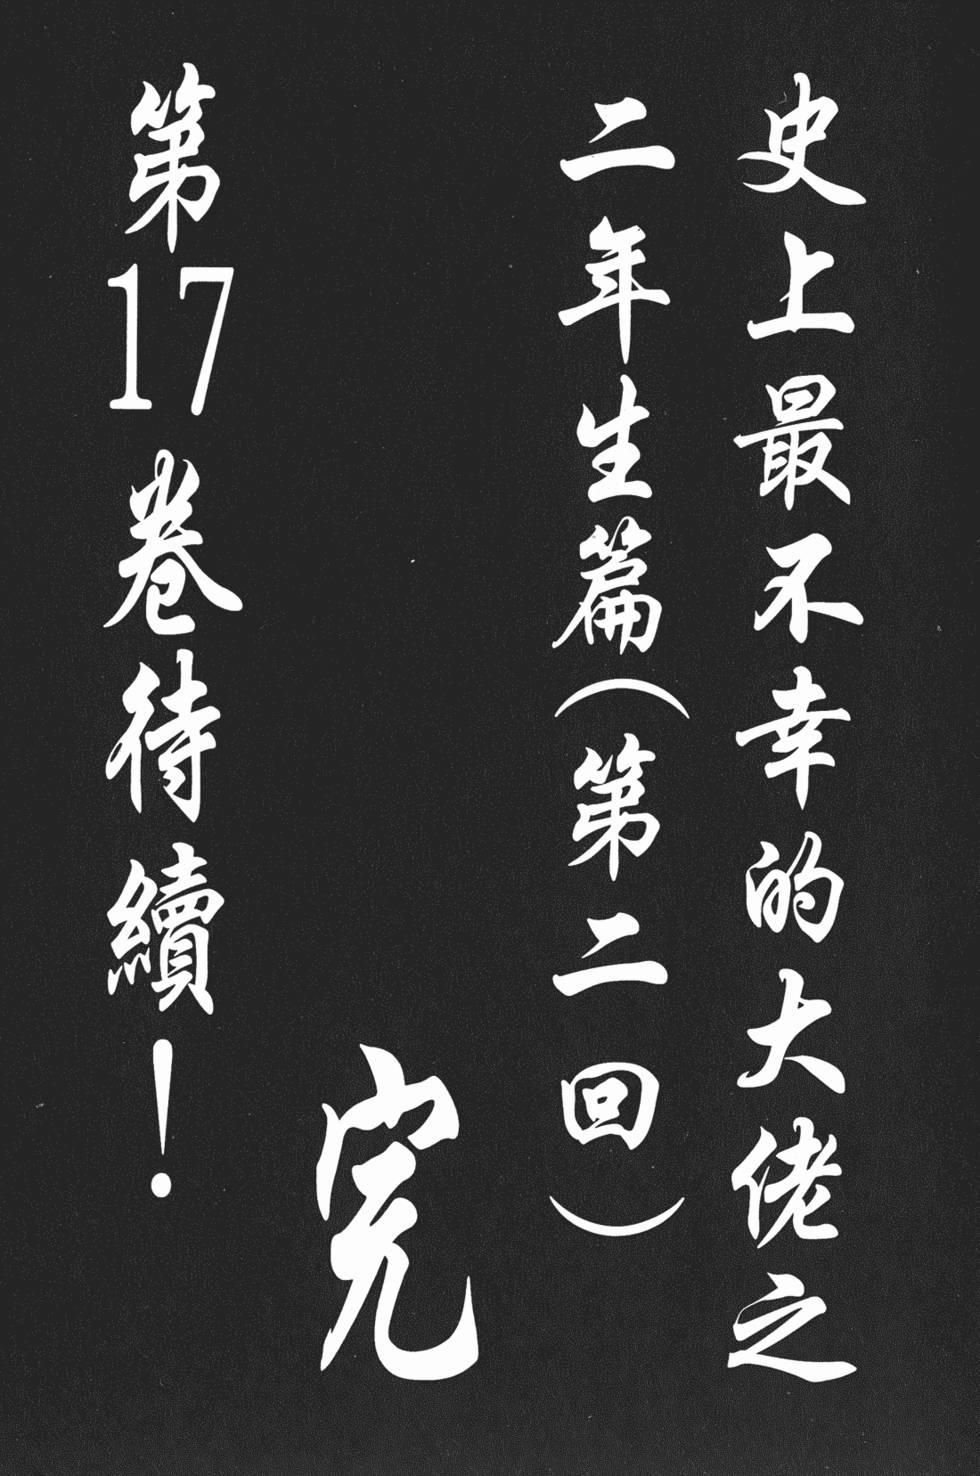 史上最不幸的大佬之
二年生篇（第二回）
完
第17卷待續！